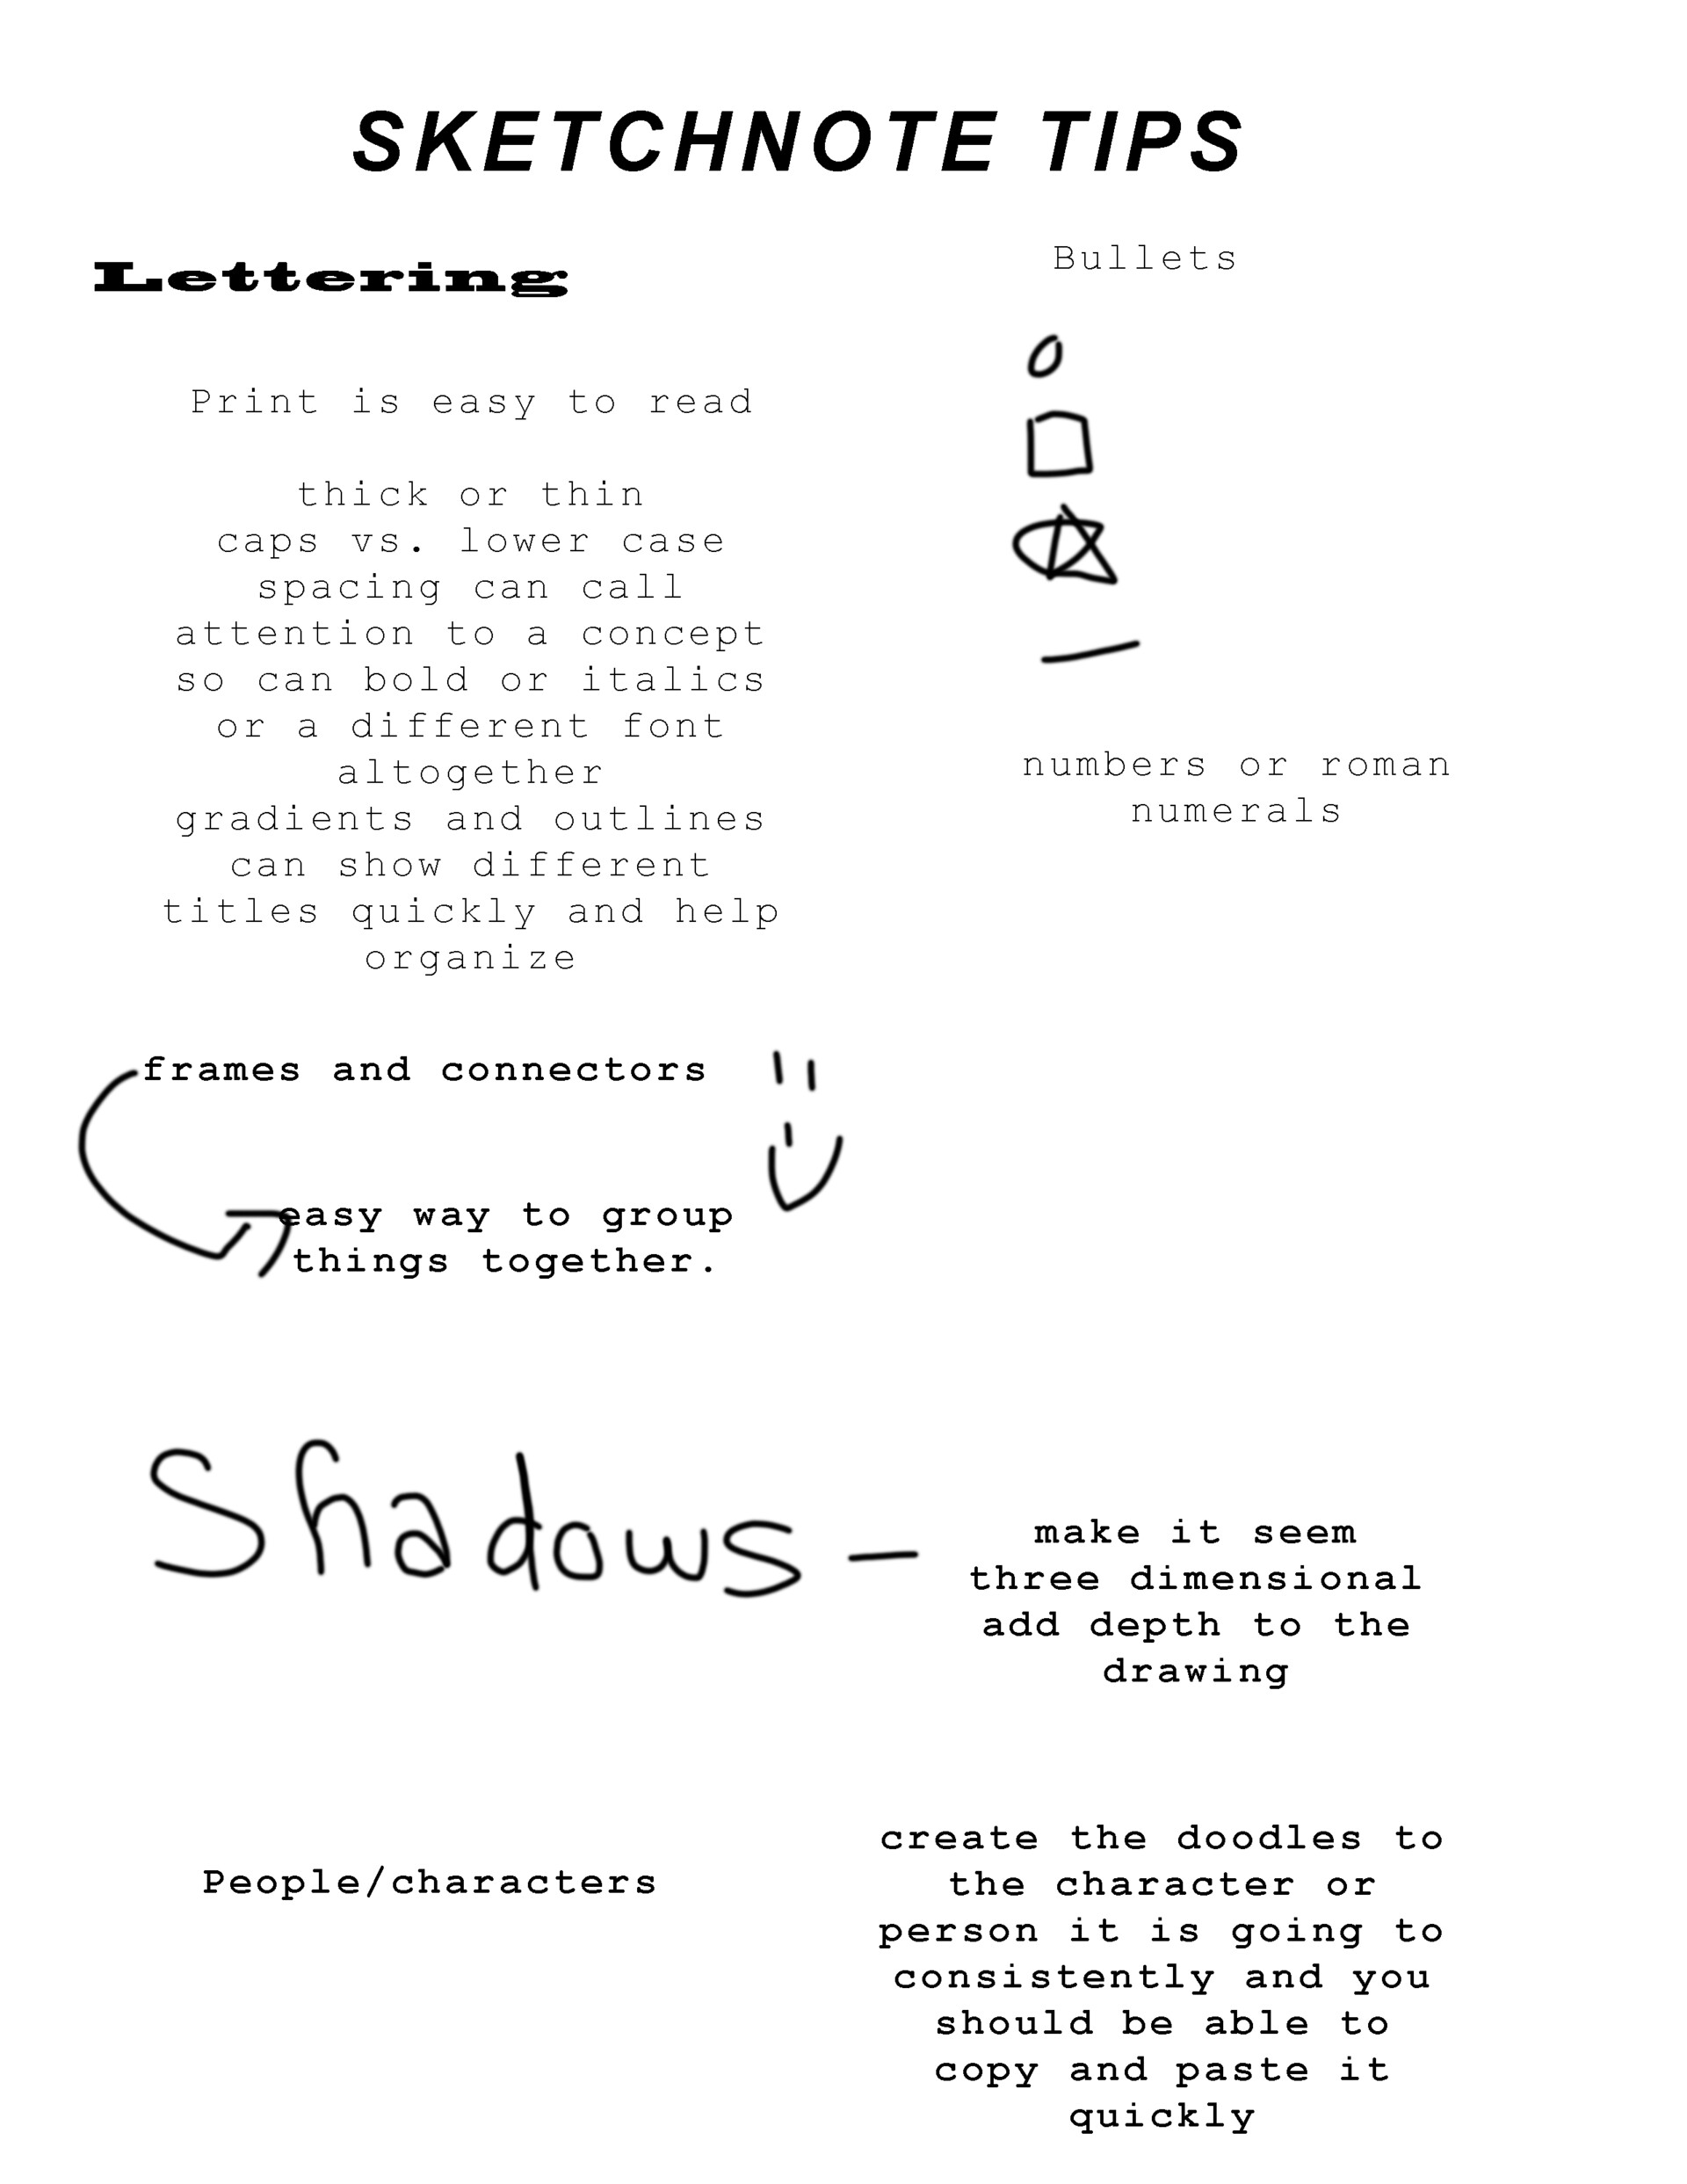 SKETCHNOTE TIPS
Lettering
Print is easy to read
thick or thin
caps vs. lower case
spacing can call
attention to a concept
so can bold or italics
or a different font
altogether
gradients and outlines
can show different
titles quickly and help
organize
Bullets
numbers or roman
numerals
frames and connectors
easy way to group
things together.
Shadows —
make it seem
three dimensional
add depth to the
drawing
People/characters
create the doodles to
the character or
person it is going to
consistently and you
should be able to
copy and paste it
quickly